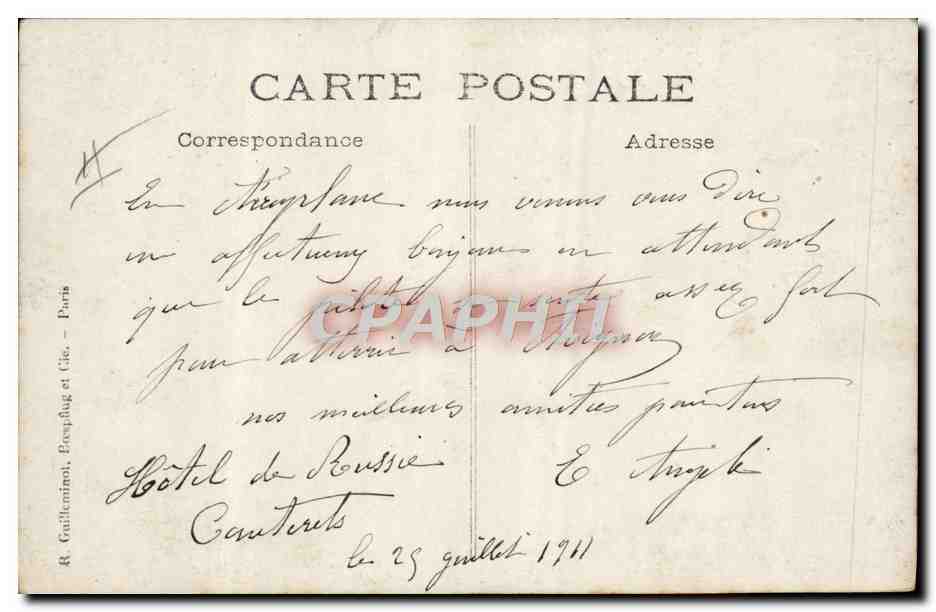 CARTE POSTALE
Correspondance
Adresse
En Aéroplane nous venons vous dire
un affectueux bonjour en attendant
que le pilote se sente assez fort
pour atterrir à Avignon
nos meilleures amitiés pour tous
E Angeli
Hôtel de Russie
Cauterets
le 25 juillet 1911
R. Guilleminot, Bœspflug et Cie. – Paris
CPAPHIL